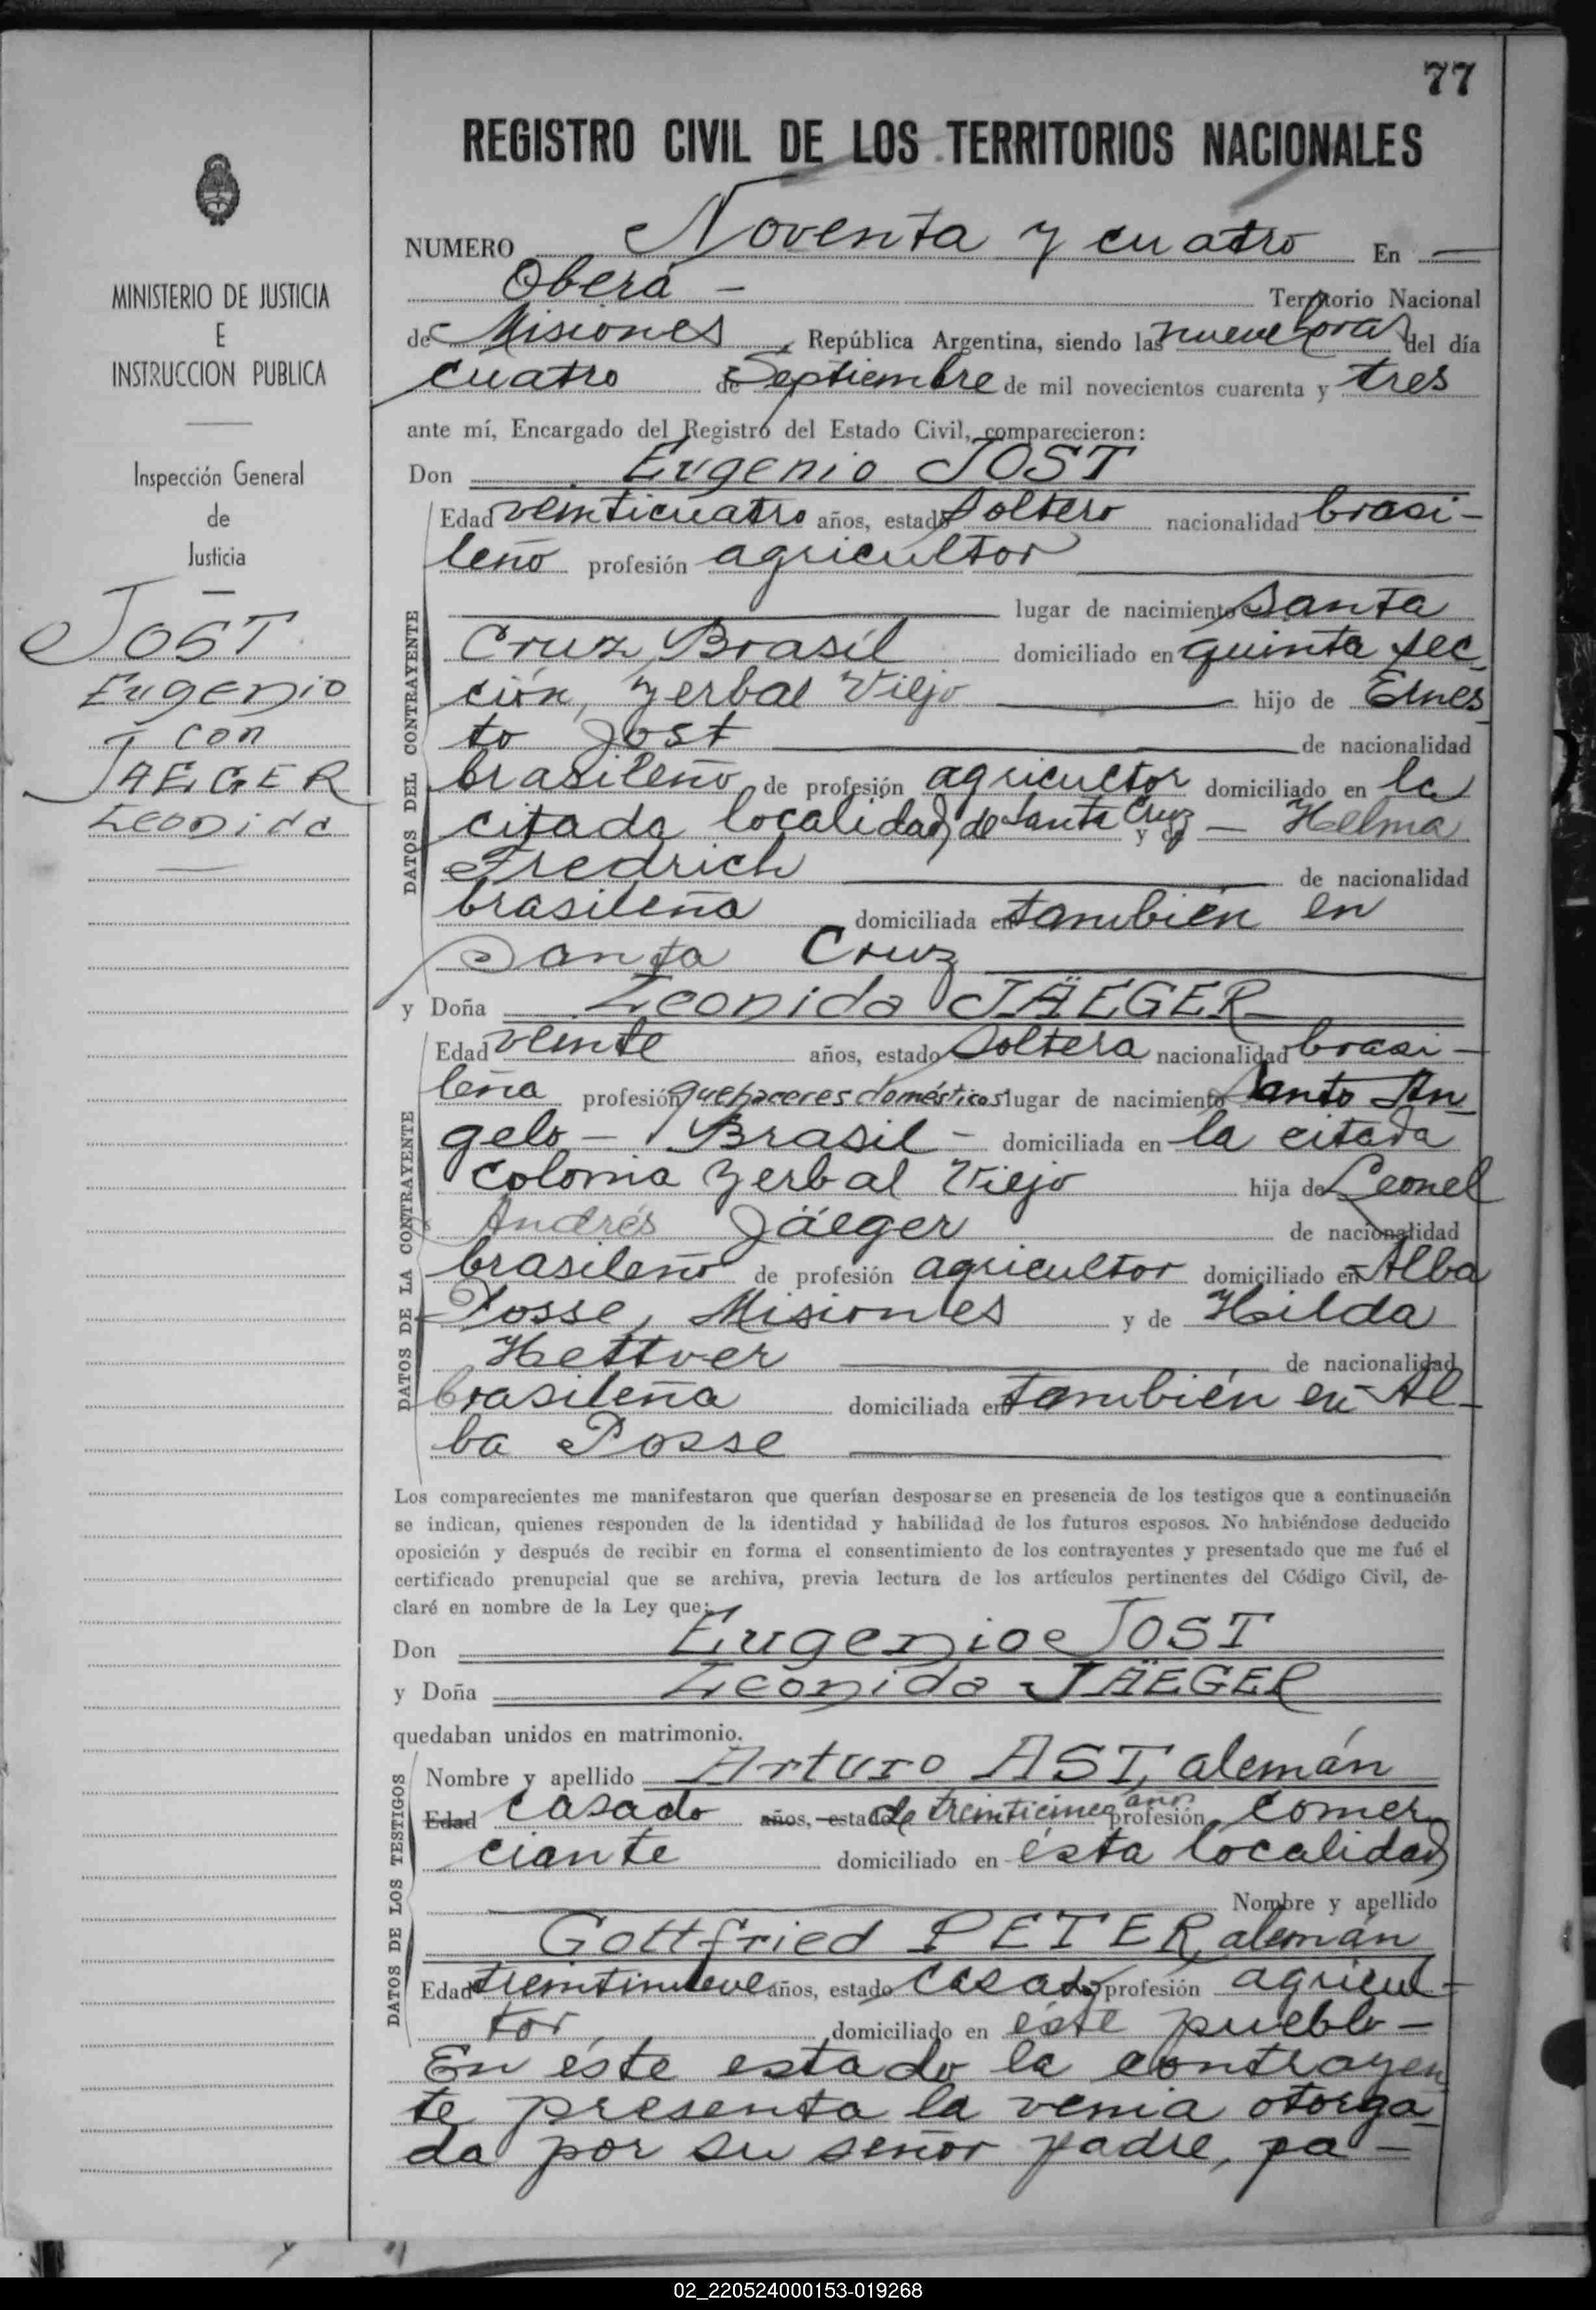 77
REGISTRO CIVIL DE LOS TERRITORIOS NACIONALES
MINISTERIO DE JUSTICIA
E
INSTRUCCION PUBLICA
Inspección General
de
Justicia
JOST
Eugenio
con
JAEGER
Leonida
NUMERO Noventa y cuatro En —
Oberá - Territorio Nacional
de Misiones, República Argentina, siendo las nueve horas del día
cuatro de Septiembre de mil novecientos cuarenta y tres
ante mí, Encargado del Registro del Estado Civil, comparecieron:
Don Eugenio JOST
DATOS DEL CONTRAYENTE
Edad veinticuatro años, estado soltero nacionalidad brasi-
leño profesión agricultor
lugar de nacimiento Santa
Cruz, Brasil domiciliado en quinta sec-
ción, Yerbal Viejo hijo de Ernes-
to Jost de nacionalidad
brasileño de profesión agricultor domiciliado en la
citada localidad de Santa Cruz y de — Helma
Fredrich de nacionalidad
brasileña domiciliada en también en
Santa Cruz
y Doña Leonida JÄEGER
DATOS DE LA CONTRAYENTE
Edad veinte años, estado soltera nacionalidad brasi-
leña profesión quehaceres domésticos lugar de nacimiento Santo An-
gelo - Brasil - domiciliada en la citada
colonia Yerbal Viejo hija de Leonel
Andrés Jäeger de nacionalidad
brasileño de profesión agricultor domiciliado en Alba
Posse, Misiones y de Hilda
Hettver de nacionalidad
brasileña domiciliada en también en Al-
ba Posse
Los comparecientes me manifestaron que querían desposarse en presencia de los testigos que a continuación
se indican, quienes responden de la identidad y habilidad de los futuros esposos. No habiéndose deducido
oposición y después de recibir en forma el consentimiento de los contrayentes y presentado que me fué el
certificado prenupcial que se archiva, previa lectura de los artículos pertinentes del Código Civil, de-
claré en nombre de la Ley que:
Don Eugenio JOST
y Doña Leonida JÄEGER
quedaban unidos en matrimonio.
DATOS DE LOS TESTIGOS
Nombre y apellido Arturo AST, alemán
Edad casado años, estado de treinticinco años profesión comer-
ciante domiciliado en ésta localidad
Nombre y apellido
Gottfried PETER, alemán
Edad treintinueve años, estado casado profesión agricul-
tor, domiciliado en éste pueblo -
En éste estado la contrayen-
te presenta la venia otorga-
da por su señor padre, pa-
02_220524000153-019268